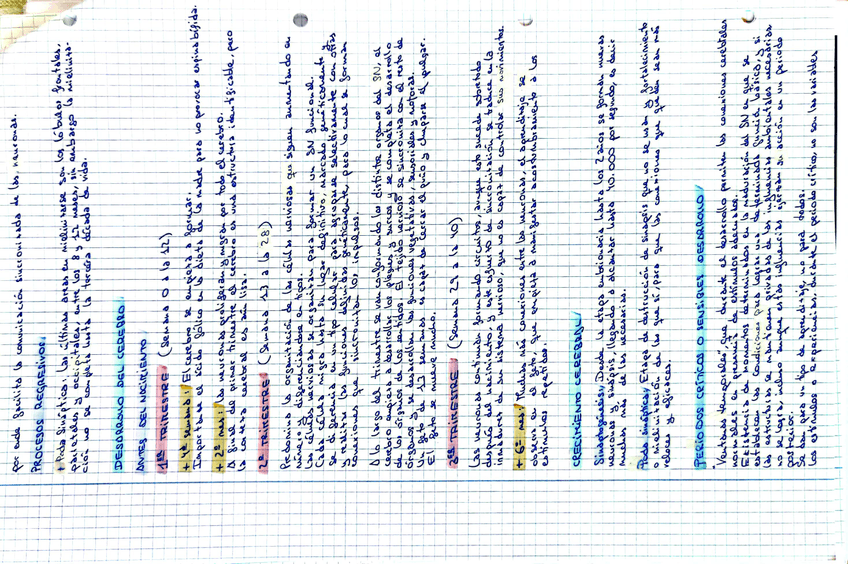 por ende facilita la comunicación sincronizada de las neuronas.
PROCESOS REGRESIVOS:
+ Poda sináptica: Las últimas áreas en mielinizarse son los lóbulos frontales,
parietales y occipitales, entre los 8 y 12 meses, sin embargo la mieliniza-
ción no se completa hasta la tercera década de vida.
DESARROLLO DEL CEREBRO:
ANTES DEL NACIMIENTO:
1er TRIMESTRE (Semana 0 a la 12)
+ 4ª semana: El cerebro se empieza a formar.
Importante el ácido fólico en la dieta de la madre para no provocar espina bífida.
+ 2º mes: Las neuronas proliferan y migran por todo el cerebro.
A final del primer trimestre el cerebro es una estructura identificable, pero
la corteza cerebral es aún lisa.
2º TRIMESTRE (Semana 13 a la 28)
Predomina la organización de las células nerviosas que siguen aumentando en
número y diferenciándose en tipos.
Las células nerviosas se organizan para formar un SN funcional.
Cada célula migra hasta su lugar definitivo, marcado genéticamente y
se diferencia en un tipo celular para agruparse selectivamente con otras
y realizar las funciones definidas genéticamente, para lo cual se forman
conexiones que sincronizan los impulsos.
A lo largo del trimestre se van conformando los distintos órganos del SN, el
cerebro empieza a desarrollar los pliegues y surcos y se completa el desarrollo
de los órganos de los sentidos. El tejido nervioso se sincroniza con el resto de
órganos y se desarrollan las funciones vegetativas, sensoriales y motoras.
Un feto de 13 semanas es capaz de cerrar el puño y chuparse el pulgar.
El feto se mueve mucho.
3er TRIMESTRE (Semana 29 a la 40)
Las neuronas continúan formando circuitos, aunque esto sucede sobretodo
después del nacimiento y este esfuerzo de sincronización se traduce en la
inmadurez de su sistema nervioso, que no es capaz de controlar sus movimientos.
+ 6º mes: Muchas más conexiones entre las neuronas, el aprendizaje se
observa en el feto, que empieza a manifestar acostumbramiento a los
estímulos repetidos.
CRECIMIENTO CEREBRAL:
Sinaptogénesis: Desde la etapa embrionaria hasta los 2 años se forman nuevas
neuronas y sinapsis, llegando a alcanzar hasta 40.000 por segundo, es decir
muchas más de las necesarias.
Poda sináptica: Etapa de destrucción de sinapsis que no se usan y fortalecimiento
o mielinización de las que sí, para que las conexiones que queden sean más
veloces y eficaces.
PERÍODOS CRÍTICOS O SENSIBLES DESARROLLO:
Ventanas temporales que durante el desarrollo permiten las conexiones cerebrales
normales en presencia de estímulos adecuados.
Existencia de momentos determinados en la maduración del SN en que se
establecen las condiciones para lograr un determinado
las estructuras se mantienen privadas de las influencias ambientales necesarias
no se logra, incluso aunque estas influencias ejerzan su acción en un período
posterior.
Se dan para un tipo de aprendizaje, no para todos.
Los estímulos o experiencias, durante el período crítico, no son las variables